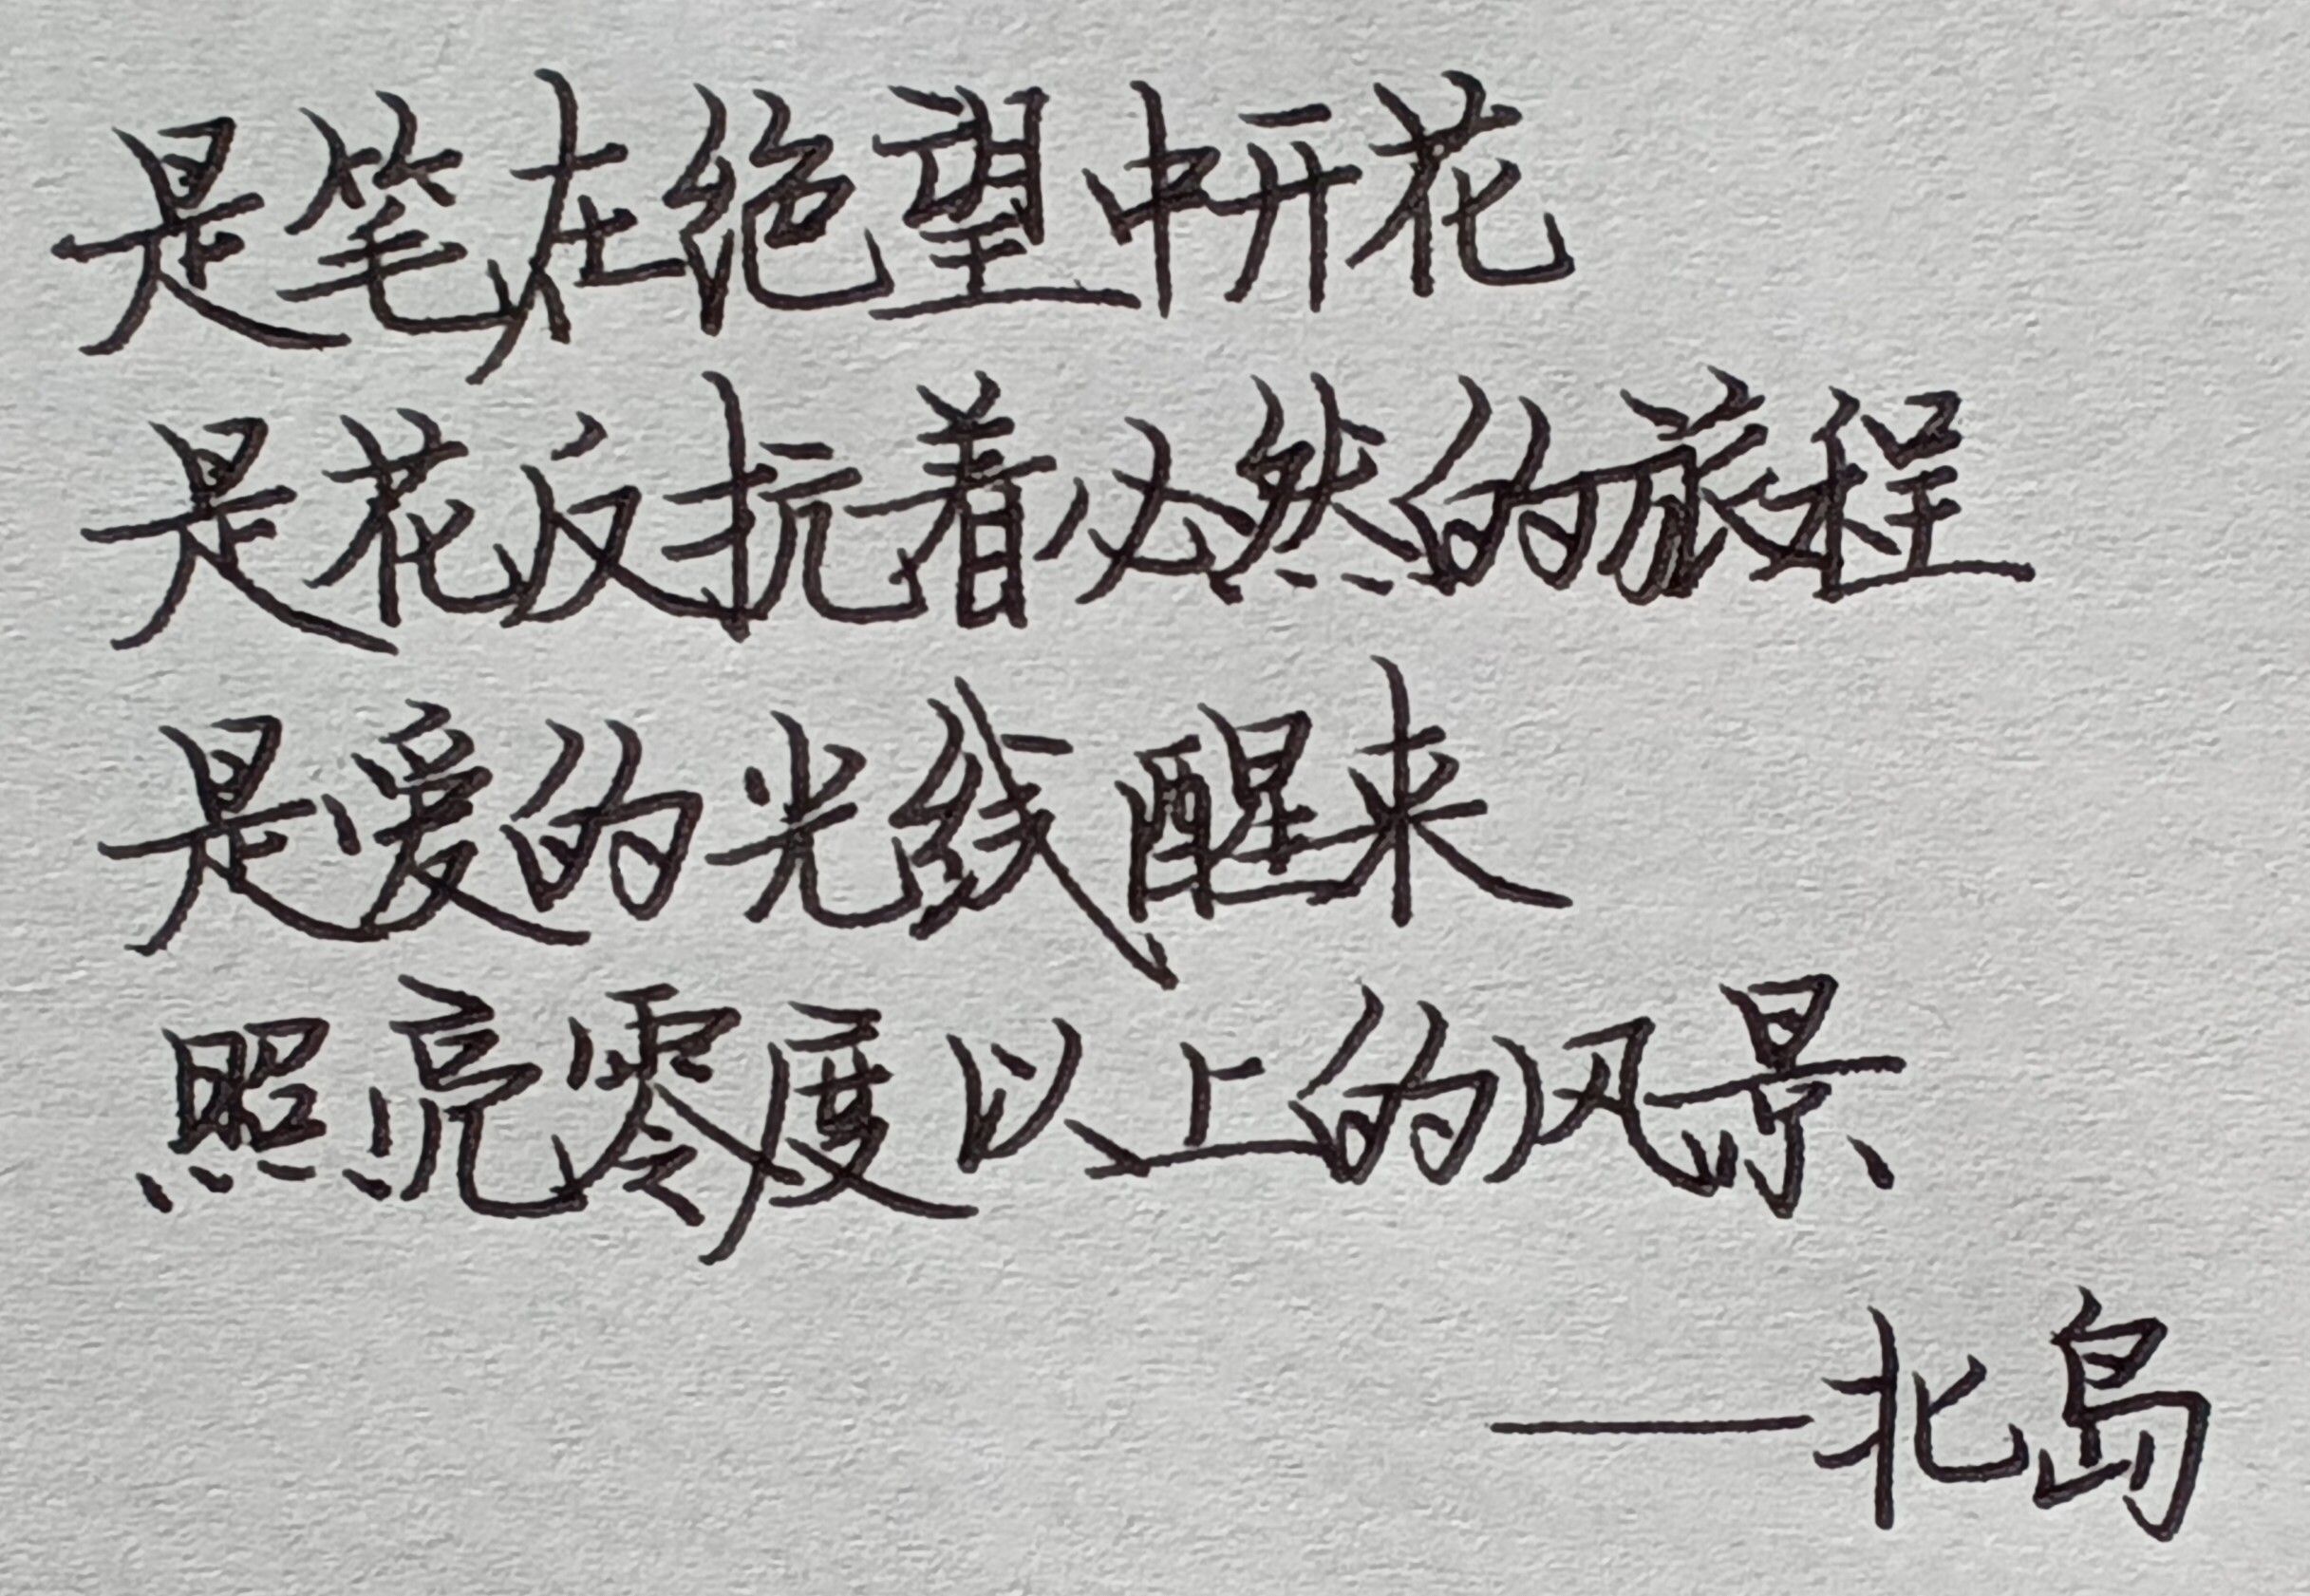 是笔在绝望中开花
是花反抗着必然的旅程
是爱的光线醒来
照亮零度以上的风景
——北岛